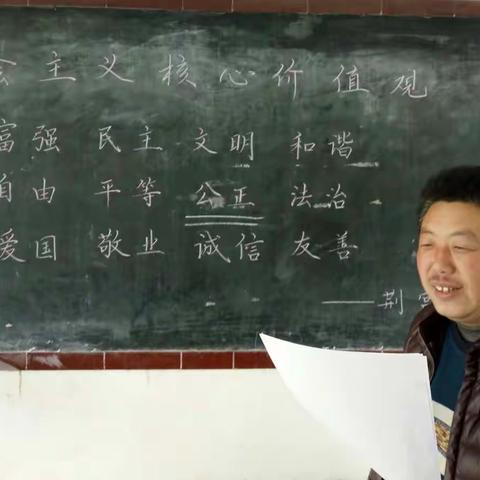 会主义核心价值观
富强 民主 文明 和谐
自由 平等 公正 法治
爱国 敬业 诚信 友善
——荆